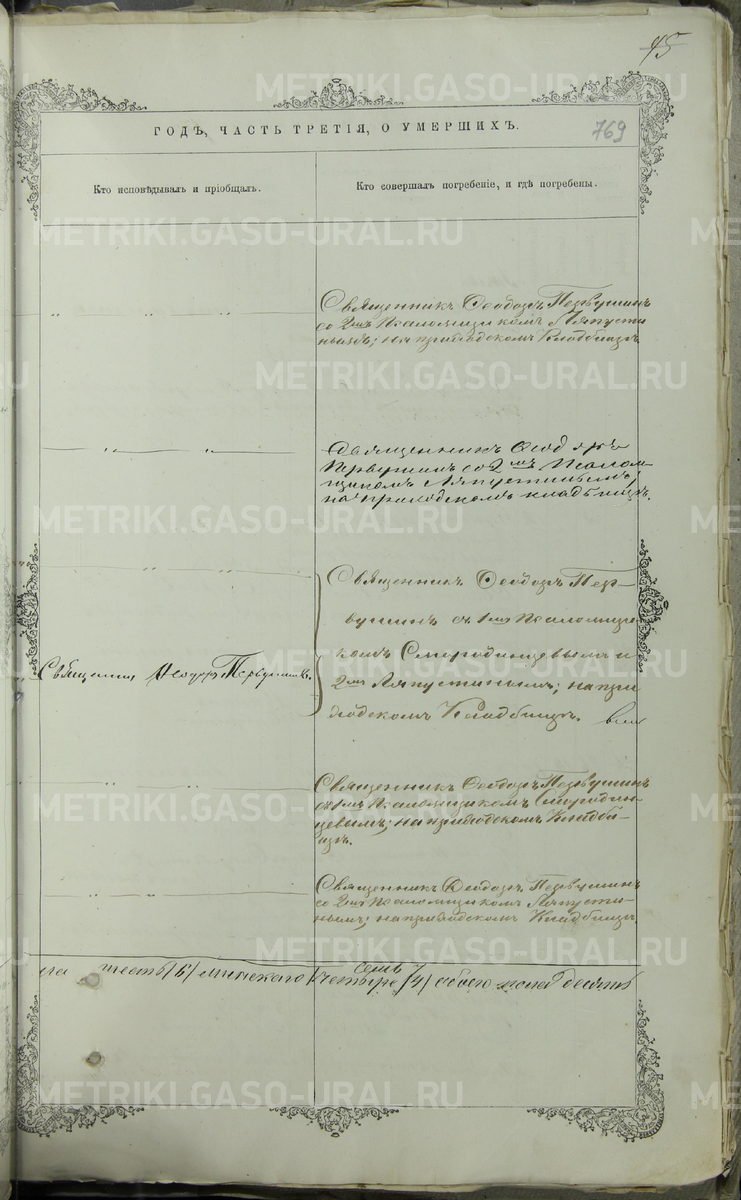 45
769
ГОДЪ, ЧАСТЬ ТРЕТІЯ, О УМЕРШИХЪ.
Кто исповѣдывалъ и пріобщалъ.
Кто совершалъ погребеніе, и гдѣ погребены.
Священникъ Ѳеодоръ Первушинъ
со 2мъ Псаломщикомъ Ляпусти
нымъ; на приходскомъ Кладбищѣ
Священникъ Ѳеодоръ
Первушинъ со 2мъ Псалом-
щикомъ Ляпустинымъ;
на приходскомъ кладбищѣ.
Священникъ Ѳеодоръ Пер-
вушинъ съ 1мъ Псаломщи
комъ Смородинцевымъ и
2мъ Ляпустинымъ; на при
ходскомъ Кладбищѣ.
Священникъ Ѳеодоръ Первушинъ.
Священникъ Ѳеодоръ Первушинъ
съ 1мъ Псаломщикомъ Смородин-
цевымъ; на приходскомъ Кладби-
щѣ.
Священникъ Ѳеодоръ Первушинъ
со 2мъ Псаломщикомъ Ляпусти-
нымъ; на приходскомъ Кладбищѣ
семь
шесть /6/ женскаго четыре /4/ обоего пола десять
METRIKI.GASO-URAL.RU